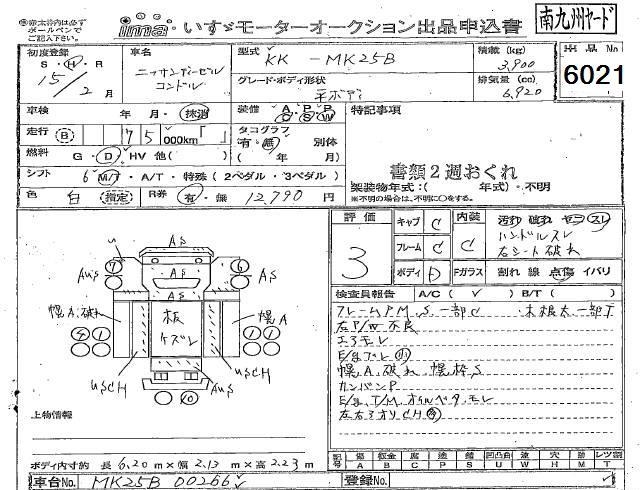 ◎赤太枠内は必ず
ボールペンで
ご記入下さい。
ima
いすゞモーターオークション出品申込書
南九州ヤード
初度登録
S・H・R
15/2月
車名
ニッサンディーゼル
コンドル
型式
KK - MK25B
グレード・ボディ形状
平ボディ
積載 (kg)
3,900
排気量 (cc)
6,920
出品No
6021
車検
年・月・抹消
装備
A P P
C S W
特記事項
走行
B
75
000km「」
タコグラフ
有・無 別体
( 年 月)
燃料
G・D・HV 他( )
書類2週おくれ
シフト
6 M/T・A/T・特殊(2ペダル・3ペダル)
架装物年式:( 年式)・不明
※不明の場合は、不明に○をする。
色
白
指定
R券
有・無
12790円
評価
3
キャブ
C
フレーム
C
ボディ
D
内装
C
汚れ 破れ ヤニ スレ
ハンドルスレ
右シート破れ
Fガラス
割れ 線 点傷 イバリ
検査員報告
A/C( ✓ )
B/T( )
フレームPM、S 一部C
左P/W不良
エアモレ
幌A、破れ 幌枠S
カンバンP
E/g、T/M、オイルベタ、モレ
U
AS
AUS
AS
AS
AS
AS
幌A破れ
板
ケズレ
幌A
USCH
USCH
AUS
上物情報
ボディ内寸約 長6.20m×幅2.13m×高2.23m
記号
傷 A
板金 B
腐 C
塗 P
錆 S
凹凸曲 U
波 W
穴 H
跡 M
レツ割 T
車台No.
MK25B 00266
登録No.